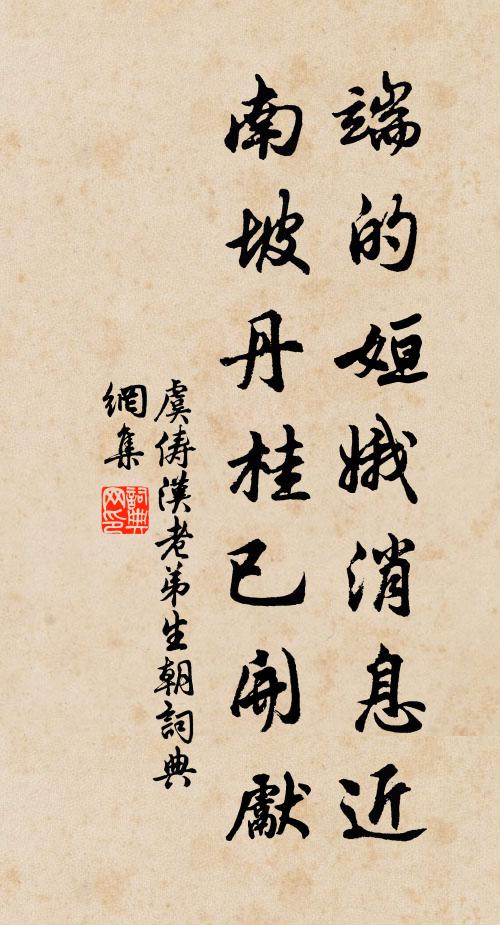 端的姮娥消息近
南坡丹桂已開獻
虞儔漢老弟生朝詞典
網集
詞典
网印